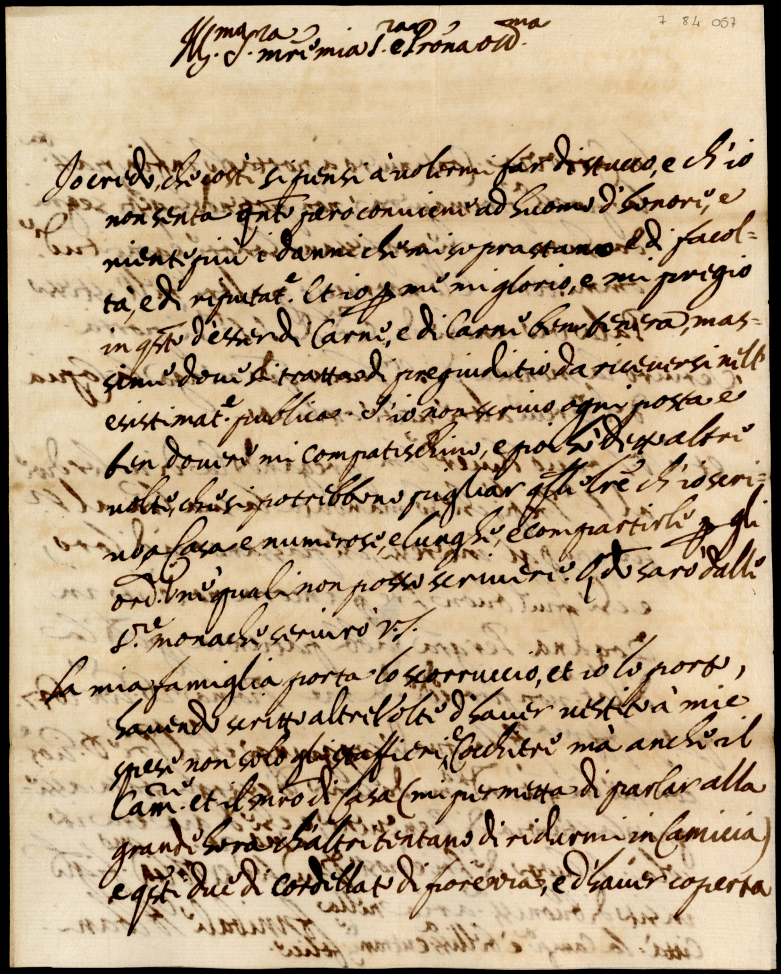 7 84 057
Ill.ma Sig.ra mre mia S.ra e Prona oss.ma
Io credo, che costì si pensi à volermi far di stucco, e ch'io
non senta qnto però conviene ad huomo d'honore, e
niente più i danni che mi soprastano e di facol=
tà, e di riputat.e Et io p me mi glorio, e mi pregio
in qsto d'esser di Carne, e di Carne ben tenera, mas=
sime dove si tratta di pregiuditio da riceversi nell'
esistimat.e publica. S'io non scrivo ogni posta è
ben dovere mi compatischino, e poi hò detto altre
volte, che si potrebbono pigliar qlle lre ch'io scri=
vo a Casa e numerose, e lunghe, e compartirle p gli
ord.i ne' quali non posso scrivere. Qdo sarò dalle
S.re monache servirò V.S.
La mia famiglia porta lo scorruccio, et io lo porto,
havendo scritto altre Volte d'haver vestito à mie
spese non solo gli staffieri, e Cocchire mà anche il
Cam.re et il mro di Casa (mi permetta di parlar alla
grande hora ch'altri tentano di ridurmi in Camicia)
e qsti due di Cordellato di fiorenza, e d'haver coperta